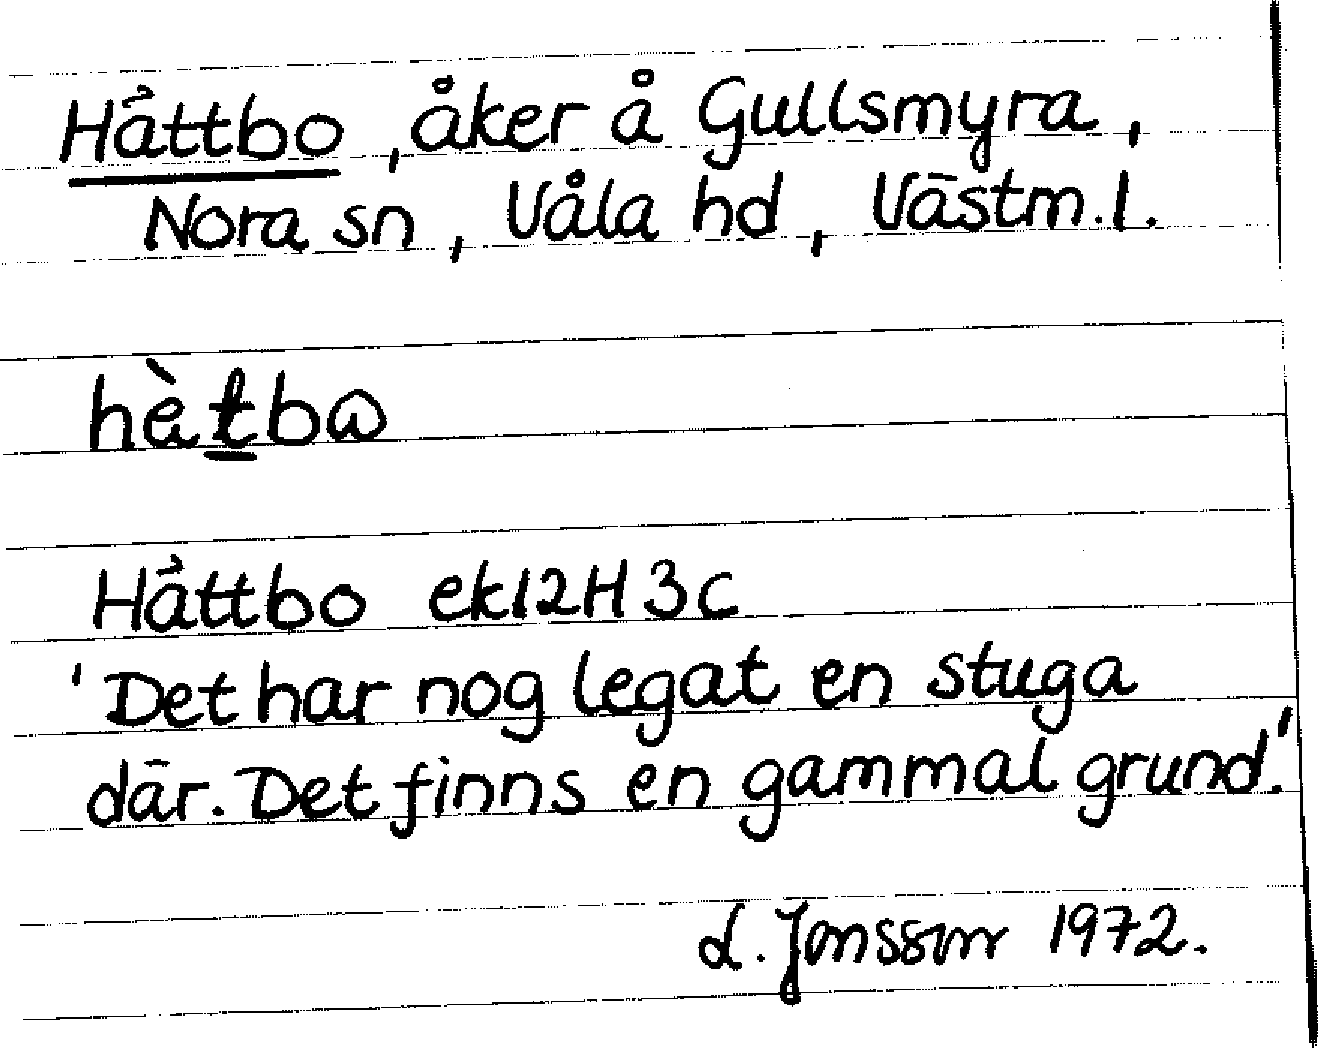 Håttbo, åker å Gullsmyra,
Nora sn, Våla hd, Västm. l.
Håttbo ek 12H 3c
'Det har nog legat en stuga
där. Det finns en gammal grund.'
L. Jonsson 1972.